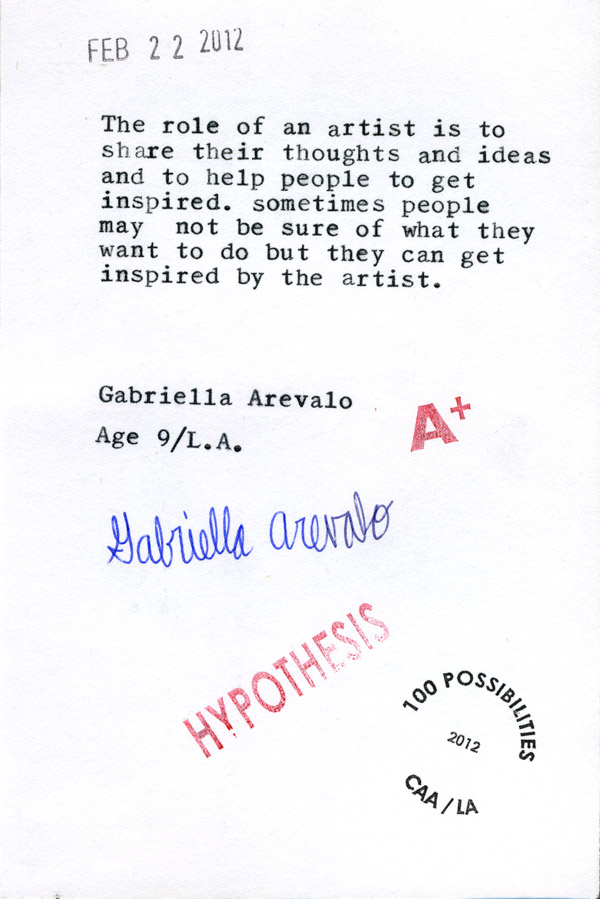 FEB 22 2012
The role of an artist is to
share their thoughts and ideas
and to help people to get
inspired. sometimes people
may  not be sure of what they
want to do but they can get
inspired by the artist.
Gabriella Arevalo
A+
Age 9/L.A.
Gabriella Arevalo
HYPOTHESIS
100 POSSIBILITIES
2012
CAA / LA